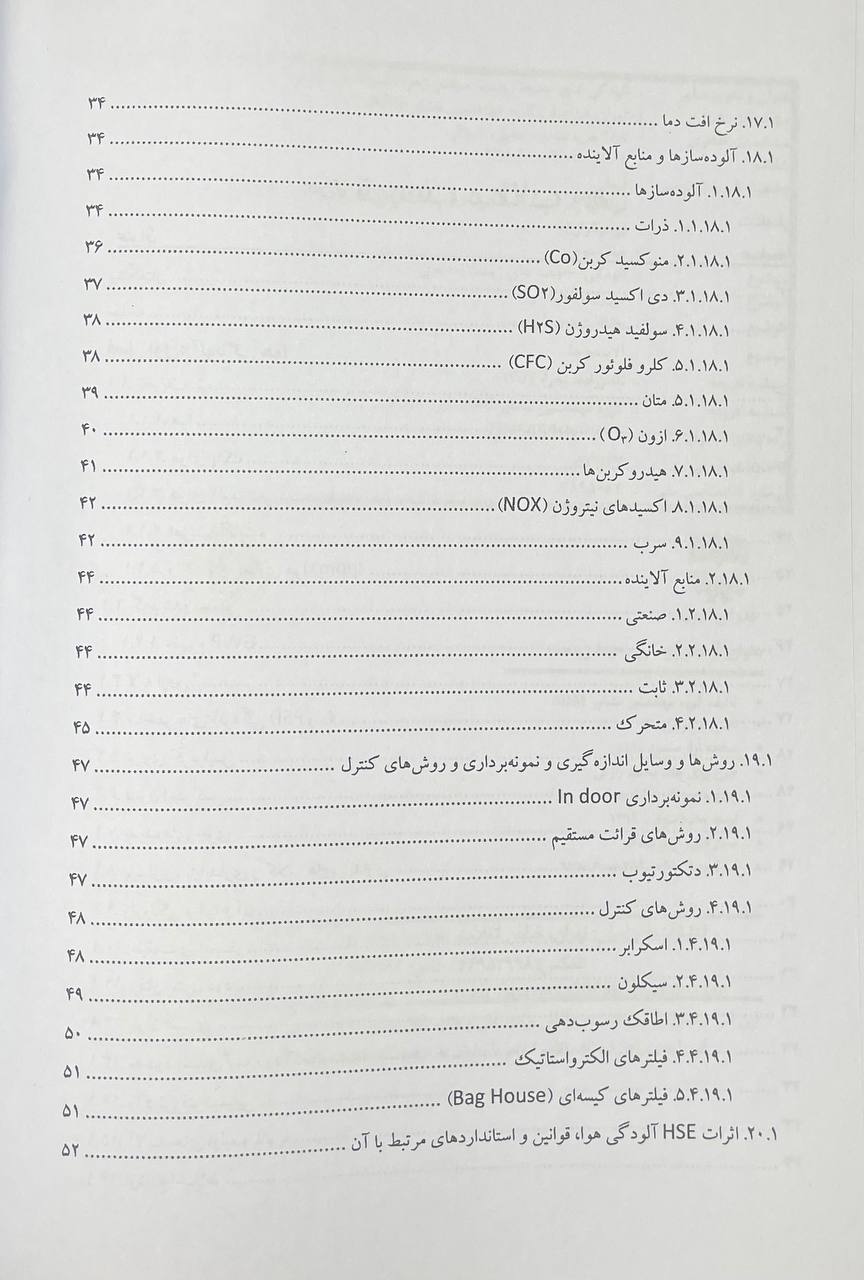 ۱۷.۱. نرخ افت دما ........ ۳۴
۱۸.۱. آلوده‌سازها و منابع آلاینده ........ ۳۴
۱.۱۸.۱. آلوده‌سازها ........ ۳۴
۱.۱.۱۸.۱. ذرات ........ ۳۴
۲.۱.۱۸.۱. منوکسید کربن(Co) ........ ۳۶
۳.۱.۱۸.۱. دی اکسید سولفور(SO۲) ........ ۳۷
۴.۱.۱۸.۱. سولفید هیدروژن (H۲S) ........ ۳۸
۵.۱.۱۸.۱. کلرو فلوئور کربن (CFC) ........ ۳۸
۵.۱.۱۸.۱. متان ........ ۳۹
۶.۱.۱۸.۱. ازون (O۳) ........ ۴۰
۷.۱.۱۸.۱. هیدروکربن‌ها ........ ۴۱
۸.۱.۱۸.۱. اکسیدهای نیتروژن (NOX) ........ ۴۲
۹.۱.۱۸.۱. سرب ........ ۴۲
۲.۱۸.۱. منابع آلاینده ........ ۴۴
۱.۲.۱۸.۱. صنعتی ........ ۴۴
۲.۲.۱۸.۱. خانگی ........ ۴۴
۳.۲.۱۸.۱. ثابت ........ ۴۴
۴.۲.۱۸.۱. متحرک ........ ۴۵
۱۹.۱. روش‌ها و وسایل اندازه‌گیری و نمونه‌برداری و روش‌های کنترل ........ ۴۷
۱.۱۹.۱. نمونه‌برداری In door ........ ۴۷
۲.۱۹.۱. روش‌های قرائت مستقیم ........ ۴۷
۳.۱۹.۱. دتکتورتیوب ........ ۴۷
۴.۱۹.۱. روش‌های کنترل ........ ۴۸
۱.۴.۱۹.۱. اسکرابر ........ ۴۸
۲.۴.۱۹.۱. سیکلون ........ ۴۹
۳.۴.۱۹.۱. اطاقک رسوب‌دهی ........ ۵۰
۴.۴.۱۹.۱. فیلترهای الکترواستاتیک ........ ۵۱
۵.۴.۱۹.۱. فیلترهای کیسه‌ای (Bag House) ........ ۵۱
۲۰.۱. اثرات HSE آلودگی هوا، قوانین و استانداردهای مرتبط با آن ........ ۵۲